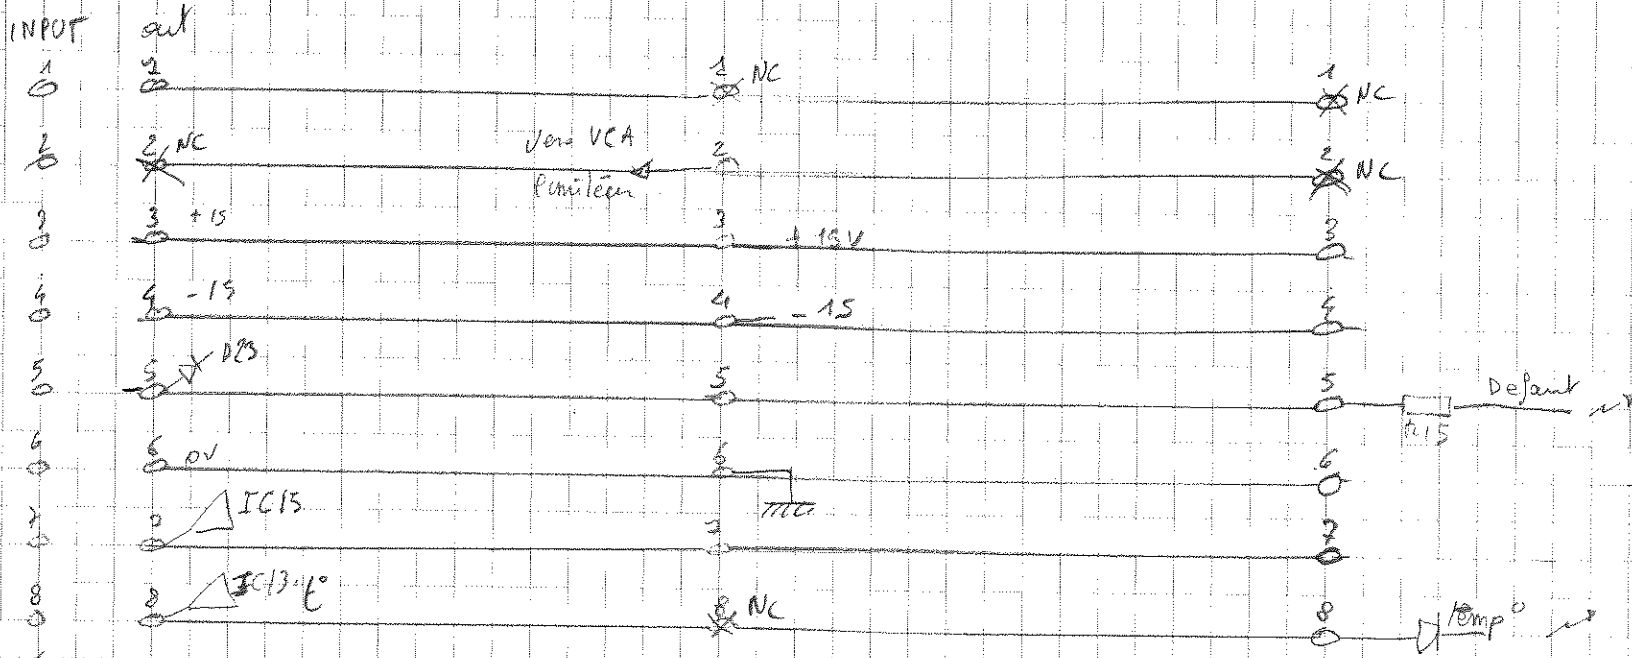 INPUT out
1 1 1 NC 1 NC
2 2 NC Vers VCA 2 2 NC
limiteur
3 3 +15 3 +15V 3
4 4 -15 4 -15 4
5 5 D23 5 5 Defaut
R15
6 6 0V 6 6
7 7 IC15 7 7
8 8 IC13 t° 8 NC 8 Temp°